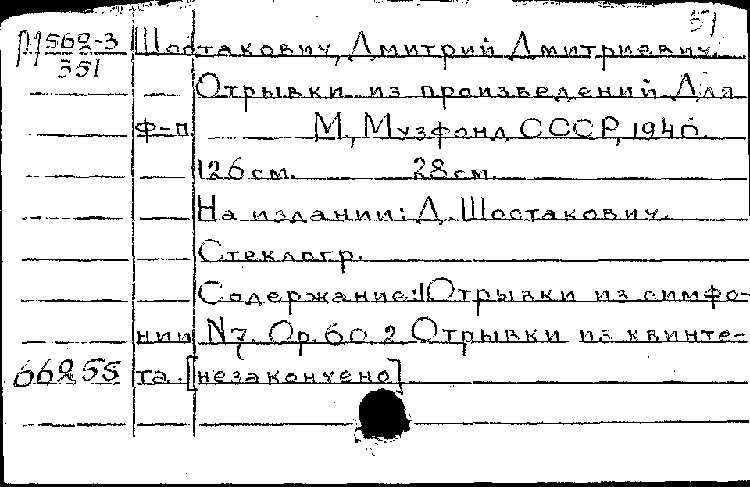 51
М 562-3 Шостакович, Дмитрий Дмитриевич.
351
Отрывки из произведений Для
ф-п М, Музфонд СССР, 1946.
126 см. 28 см.
На издании: Д. Шостакович.
Стеклогр.
Содержание: 1 Отрывки из симфо-
нии N 7. Op. 60. 2 Отрывки из квинте-
66255 та. [незакончено]